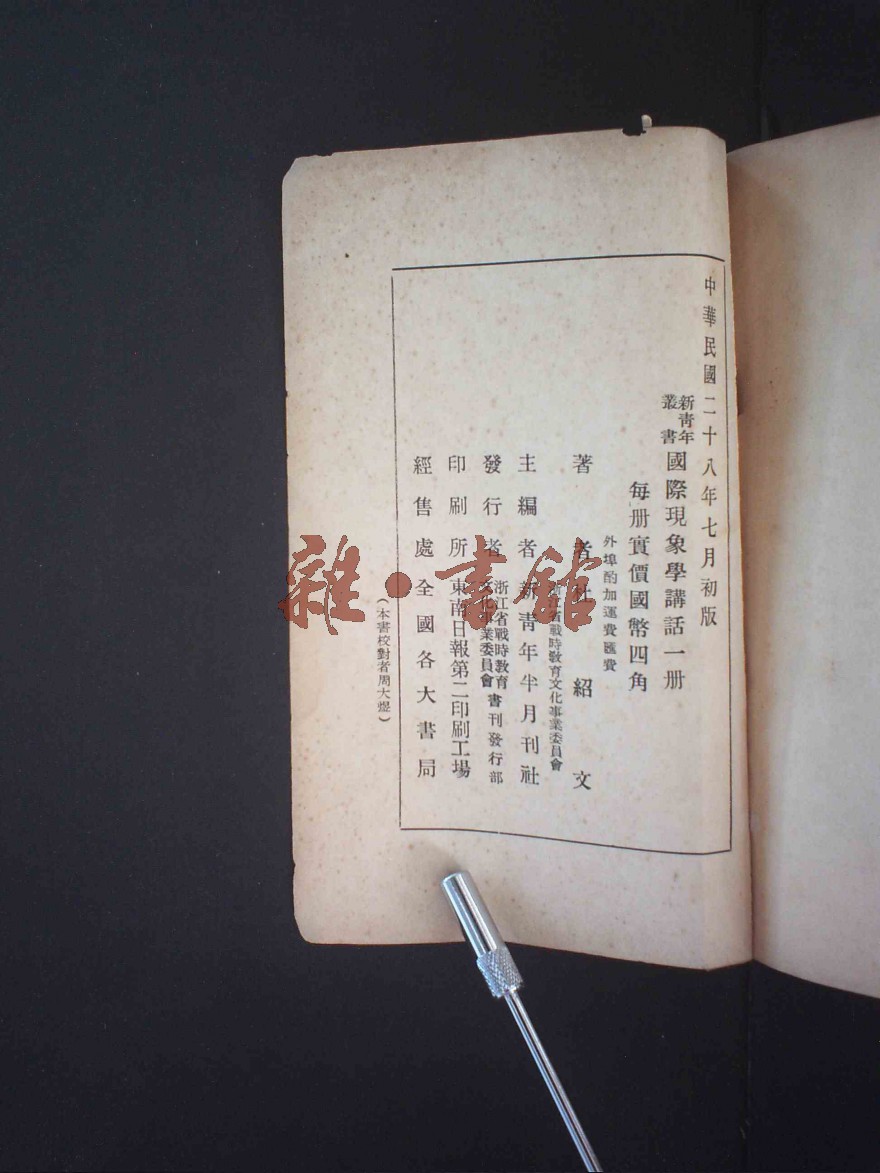 中華民國二十八年七月初版
新青年叢書 國際現象學講話一册
每册實價國幣四角
外埠酌加運費匯費
著者 杜紹文
浙江省戰時敎育文化事業委員會
主編者 新青年半月刊社
發行者 浙江省戰時敎育文化事業委員會 書刊發行部
印刷所 東南日報第二印刷工場
經售處 全國各大書局
(本書校對者周大煜)
雜·書館